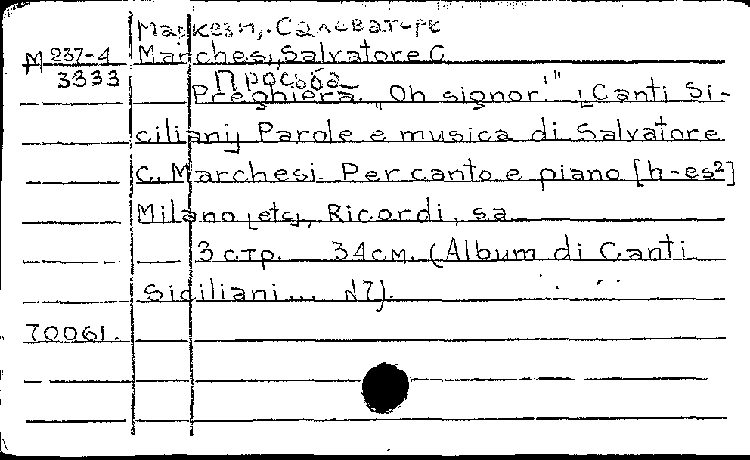 Маркези, Сальваторе
М 237-4 Marchesi, Salvatore C.
3333 Просьба
Preghiera „Oh signor!" [Canti Si-
ciliani] Parole e musica di Salvatore
C. Marchesi. Per canto e piano [h-es²]
Milano [etc], Ricordi, s.a.
3 стр. 34 см. (Album di Canti
Siciliani... N7).
70061.